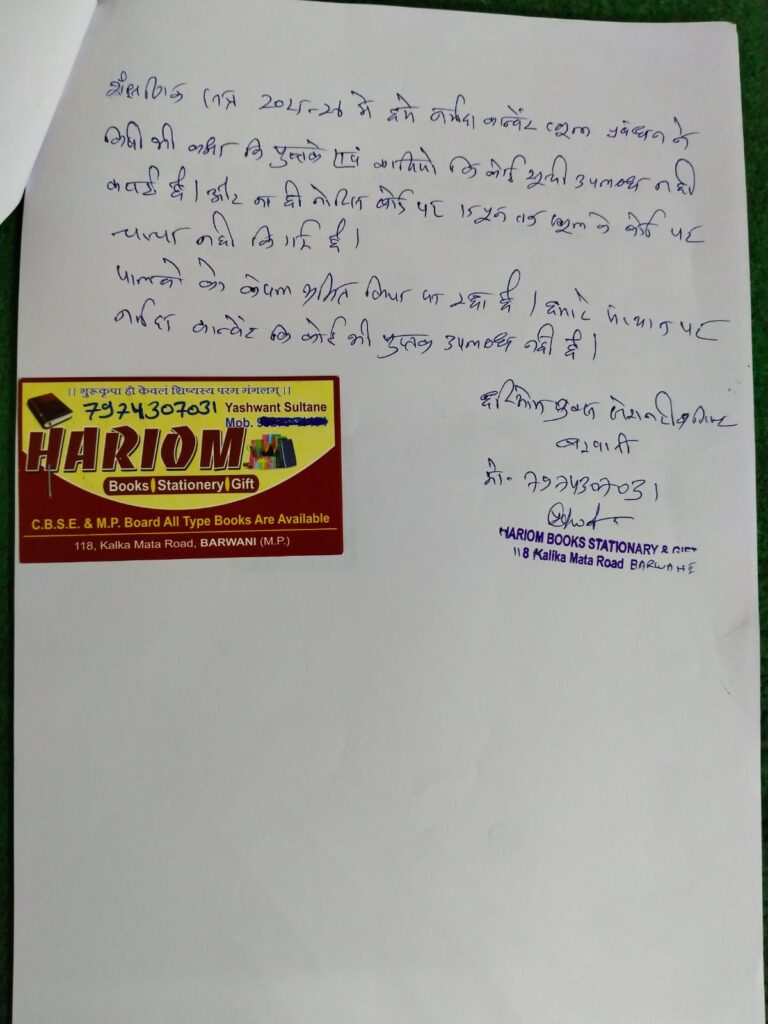 शैक्षणिक सत्र 2025-26 मे हमे नर्मदा कान्वेंट स्कूल प्रबंधन ने
किसी भी कक्षा कि पुस्तके एवं कापियो कि कोई सूची उपलब्ध नही
करवाई है। और ना ही नोटिस बोर्ड पर तक स्कूल के बोर्ड पर
चस्पा नही कि गई है।
पालको को केवल भ्रमित किया जा रहा है। हमारे संस्थान पर
नर्मदा कान्वेंट कि कोई भी पुस्तक उपलब्ध नही है।
|| गुरुकृपा ही केवलं शिष्यस्य परम मंगलम् ||
7974307031 Yashwant Sultane
Mob.
HARIOM
Books Stationery Gift
C.B.S.E. & M.P. Board All Type Books Are Available
118, Kalka Mata Road, BARWANI (M.P.)
हरिओम बुक्स स्टेशनरी गिफ्ट
बड़वानी
मो- 7974307031
HARIOM BOOKS STATIONARY & GIFT
118 Kalika Mata Road BARWANI